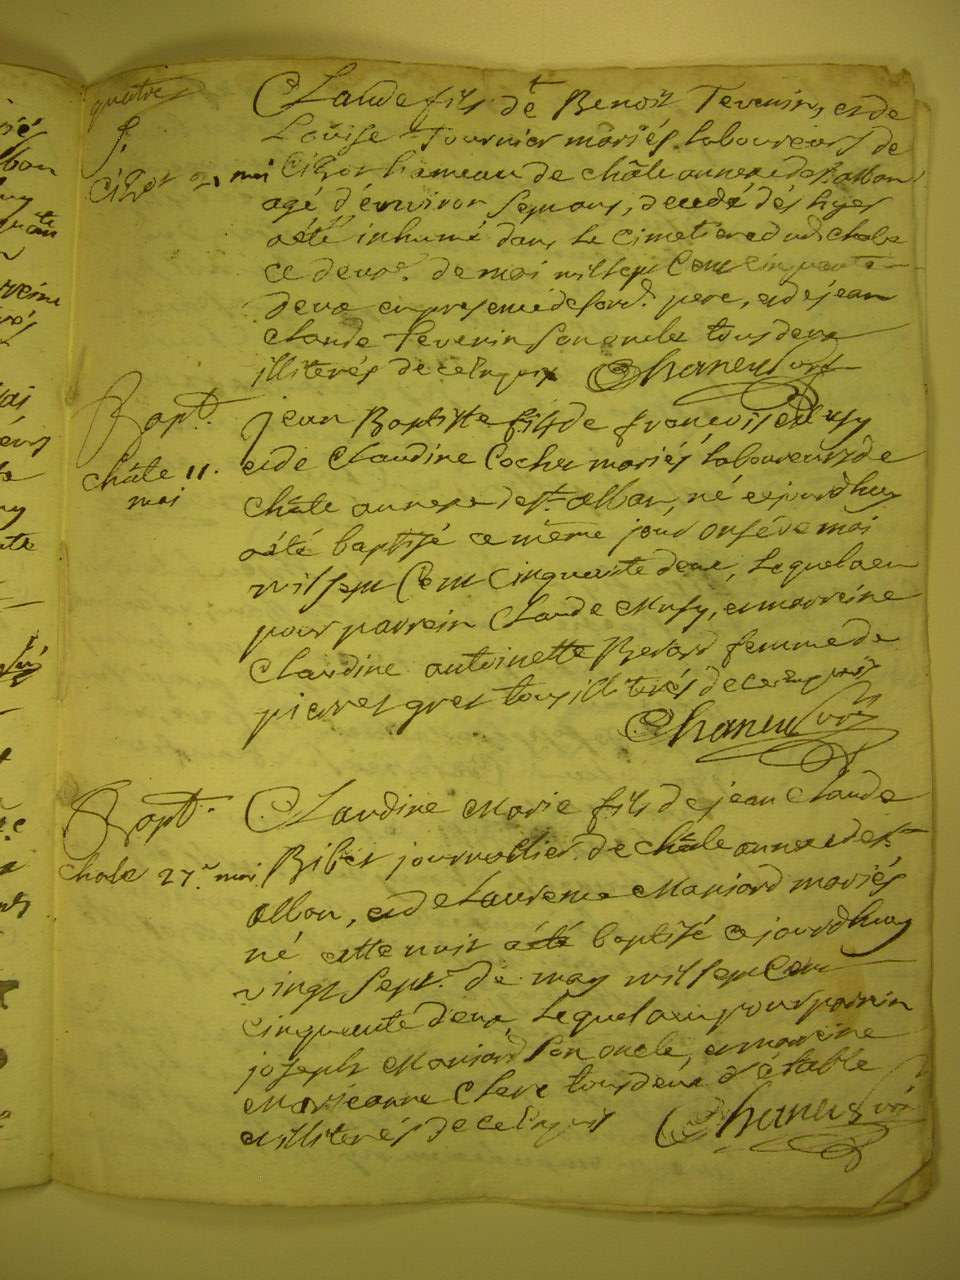 quatre
Claude fils de Benoit Tevenin, et de
Louise Fournier mariés laboureurs de
S.
Cizot 2 mai
Cizot hameau de Châle annexe de st. alban
agé d'environ sept ans, decedé dés hyer
a été inhumé dans le cimetiere dud. chale
ce deux de mai mil sept Cent cinquante
deux en presence de sond. pere, et de jean
claude Tevenin son oncle tous deux
illiterés de ce enquis
Bapt.
châle 11.
mai
jean Baptiste fils de francois
et de Claudine Cochet mariés laboureurs de
châle annexe de st. alban, né cejourdhuy
a été baptisé ce même jour onséve mai
mil sept Cent Cinquante deux, lequel a eu
pour parrein Claude, et marreine
Claudine antoinette Berard femme de
pierre gret tous illiterés de ce enquis
Bapt.
chale 27. mai
Claudine Marie fils de jean Claude
Bibet journallier de châle annexe de st.
albon, et de Laurence Maniard mariés
né cette nuit a été baptisé cejourdhuy
vingt sept. de may mil sept Cent
cinquante deux, lequel a eu pour parrin
joseph Maniard son oncle, et marreine
Marieanne Clerc tous deux d'étable
et illiterés de ce enquis